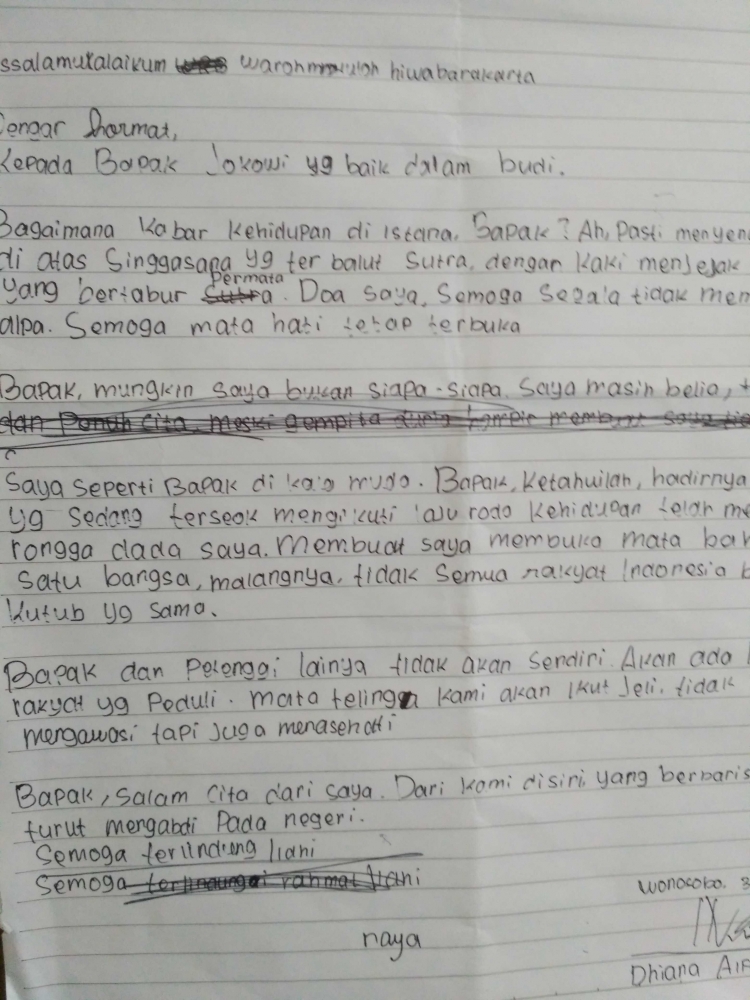 ssalamukalaikum warohmatuloh hiwabarakarta
Dengar hormat,
Kepada Bapak Jokowi yg baik dalam budi.
Bagaimana kabar kehidupan di istana, Bapak? Ah, Pasti menyen
di atas Singgasana yg ter balut Sutra, dengan kaki menjejak
yang bertabur Permata. Doa saya, Semoga Segala tidak mem
alpa. Semoga mata hati tetap terbuka
Bapak, mungkin saya bukan siapa-siapa. Saya masih belia, t
dan Penuh cita, meski gempita
Saya seperti Bapak di kala muda. Bapak, Ketahuilah, hadirnya
yg sedang terseok mengikuti laju roda kehidupan telah me
rongga dada saya. Membuat saya membuka mata bah
Satu bangsa, malangnya, tidak semua rakyat Indonesia b
Kutub yg sama.
Bapak dan Petenggi lainya tidak akan sendiri. Akan ada
rakyat yg Peduli. mata telinga kami akan ikut Jeli, tidak
mengawasi tapi juga menasehati
Bapak, salam cita dari saya. Dari kami disini, yang berbaris
turut mengabdi Pada negeri.
Semoga terlindung Ilahi
Semoga terlindungi rahmat Ilahi
Wonosobo, 3
naya
Dhiana